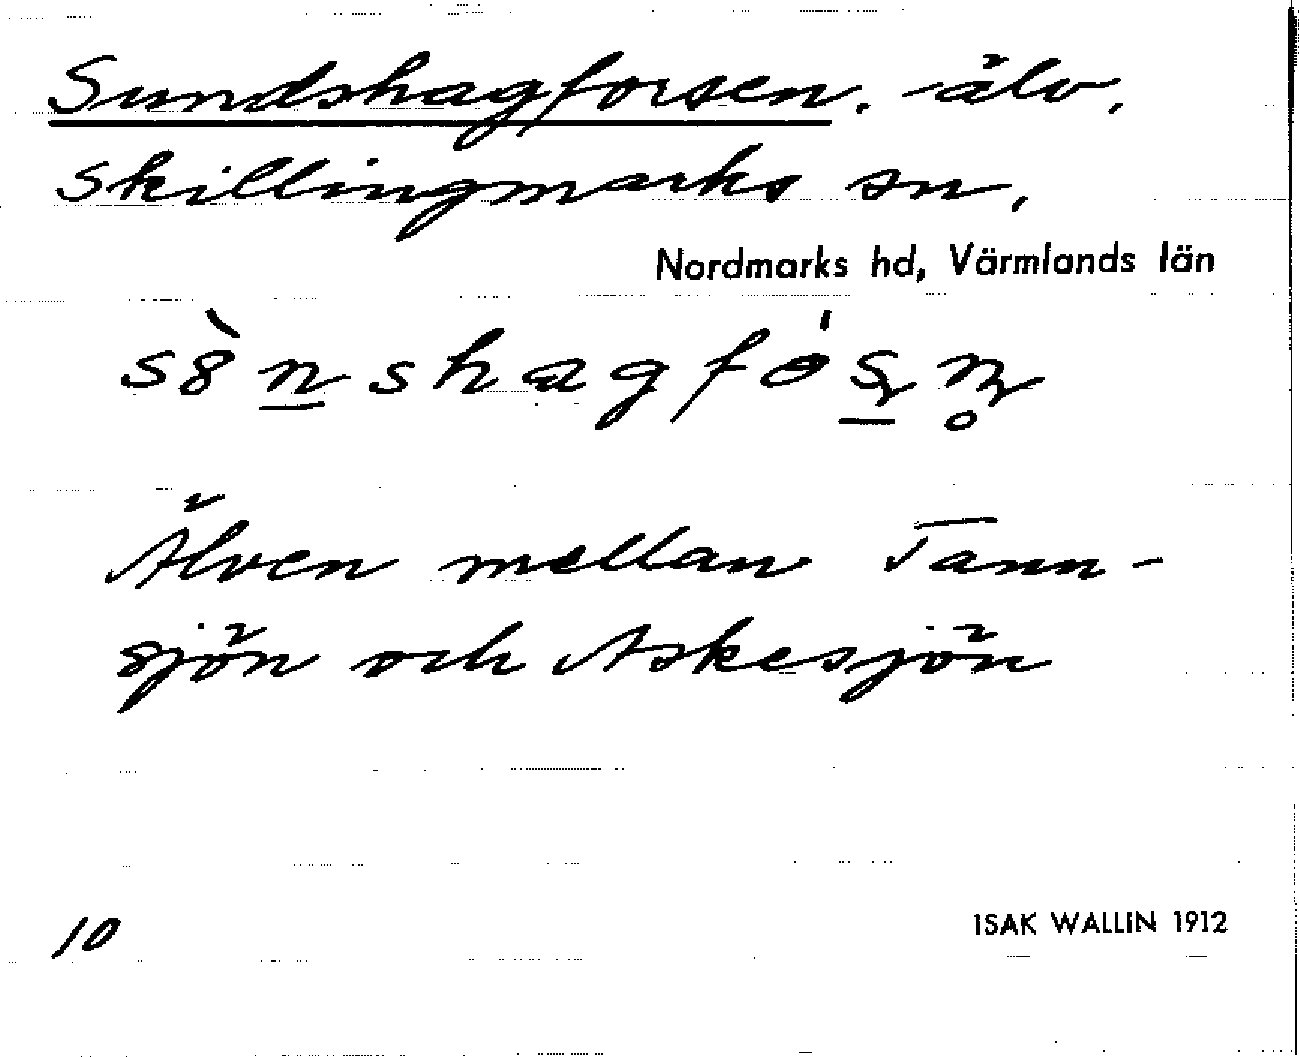 Sundshagforsen. älv,
Skillingmarks sn,
Nordmarks hd, Värmlands län
s8̀n̲shagfós̲n̥
Älven mellan Tann-
sjön och Askesjön
10
ISAK WALLIN 1912